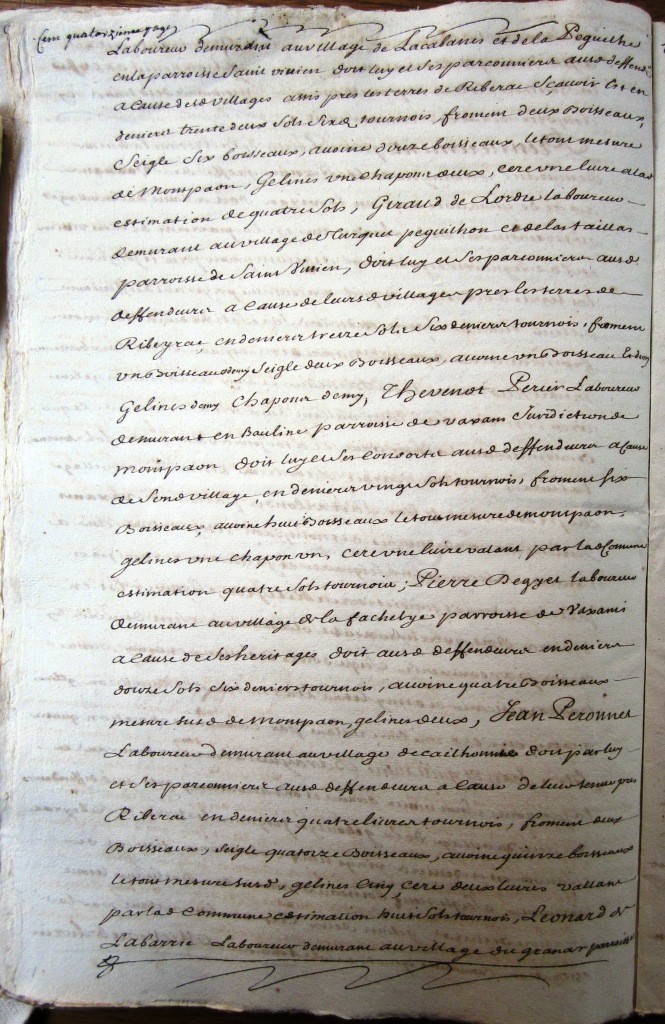 Cent quatorzieme page
Laboureur demurant au village de Lacabanes et de la Peguilhe
en la parroisse Saint vivien doit luy et ses parconniers ausd deffend
a Cause desd villages assis pres les terres de Riberac Sçavoir Est en
deniers trente deux Sols Six d tournois, froment deux Boisseaux,
Seigle Six boisseaux, avoine douze boisseaux, le tout mesure
de Montpaon, Gelines une chapons deux, cere une livre a lad
estimation de quatre Sols, Giraud de Lordre laboureur
demurant au village de peguilhon et de las taillas
parroisse de Saint Vivien, doit luy et Ses parconniers ausd
deffendeurs a Cause de leursd villages pres les terres de
Ribeyrac, en deniers treize Sols Six deniers tournois, froment
un Boisseau demy Seigle deux Boisseaux, avoine un Boisseau et demy
Gelines demy Chapons demy, Thevenot Perier Laboureur
demurant en Bauline parroisse de vaxans Juridiction de
montpaon doit luy et Ses Consorts ausd deffendeurs a Cause
de Sond village, en deniers vingt Sols tournois, froment six
Boisseaux, avoine huit Boisseaux le tout mesure de montpaon,
gelines une chapon un, cere une livre valant par lad Commune
estimation quatre Sols tournois; Pierre Deqyet laboureur
demurant au village de la fachelye parroisse de Vaxains
a Cause de Ses heritages doit ausd deffendeurs en deniers
douze Sols Six deniers tournois, avoine quatre Boisseaux
mesure susd de Montpaon, gelines deux, Jean Peronnet
Laboureur demurant au village de cailhomie doit par luy
et Ses parconniers ausd deffendeurs a Cause de leur tenue pres
Riberac en deniers quatre livres tournois, froment deux
Boisseaux, Seigle quatorze Boisseaux, avoine quinze boisseaux
le tout mesure susd, gelines Cinq, cere deux livres vallant
par lad Commune estimation huit Sols tournois, Leonard de
Labarrie Laboureur demurant au village du granar parroisse